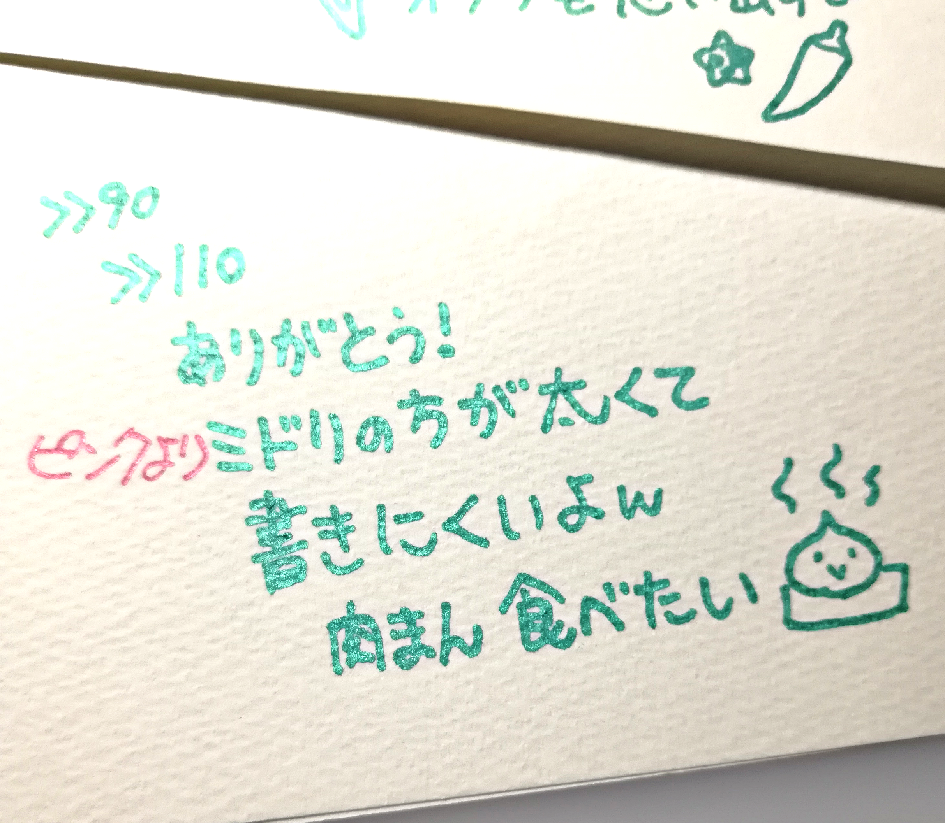 >>90
>>110
ありがとう!
ピンクよりミドリの方が太くて
書きにくいよw
肉まん 食べたい